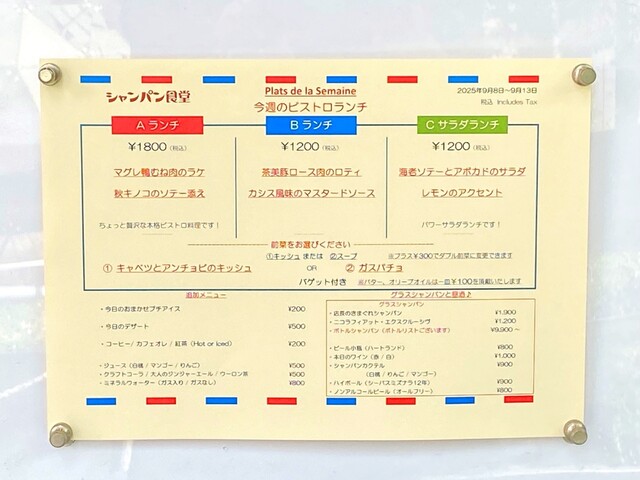 シャンパン食堂
Plats de la Semaine
今週のビストロランチ
2025年9月8日～9月13日
税込 Includes Tax
A ランチ
¥1800（税込）
マグレ鴨むね肉のラケ
秋キノコのソテー添え
ちょっと贅沢な本格ビストロ料理です！
B ランチ
¥1200（税込）
茶美豚ロース肉のロティ
カシス風味のマスタードソース
C サラダランチ
¥1200（税込）
海老ソテーとアボカドのサラダ
レモンのアクセント
パワーサラダランチです！
前菜をお選びください
①キッシュ または ②スープ ※プラス¥300でダブル前菜に変更できます
① キャベツとアンチョビのキッシュ OR ② ガスパチョ
バゲット付き ※バター、オリーブオイルは一皿¥100を頂戴いたします
追加メニュー
・今日のおまかせプチアイス ¥200
・今日のデザート ¥500
・コーヒー / カフェオレ / 紅茶（Hot or Iced） ¥200
・ジュース（白桃 / マンゴー / りんご） ¥500
・クラフトコーラ / 大人のジンジャーエール / ウーロン茶 ¥500
・ミネラルウォーター（ガス入り / ガスなし） ¥800
グラスシャンパンと昼酒♪
グラスシャンパン
・店長のきまぐれシャンパン ¥1,900
・ニコラフィアット・エクスクルーシヴ ¥1,200
・ボトルシャンパン（ボトルリストございます） ¥9,900～
・ビール小瓶（ハートランド） ¥800
・本日のワイン（赤 / 白） ¥1,000
・シャンパンカクテル ¥900
（白桃 / りんご / マンゴー）
・ハイボール（シーバスミズナラ12年） ¥900
・ノンアルコールビール（オールフリー） ¥800